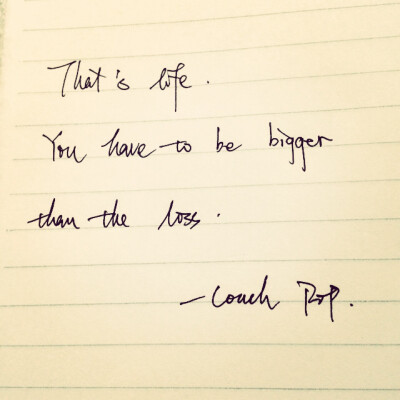 That's life.
You have to be bigger
than the loss.
- Coach Pop.